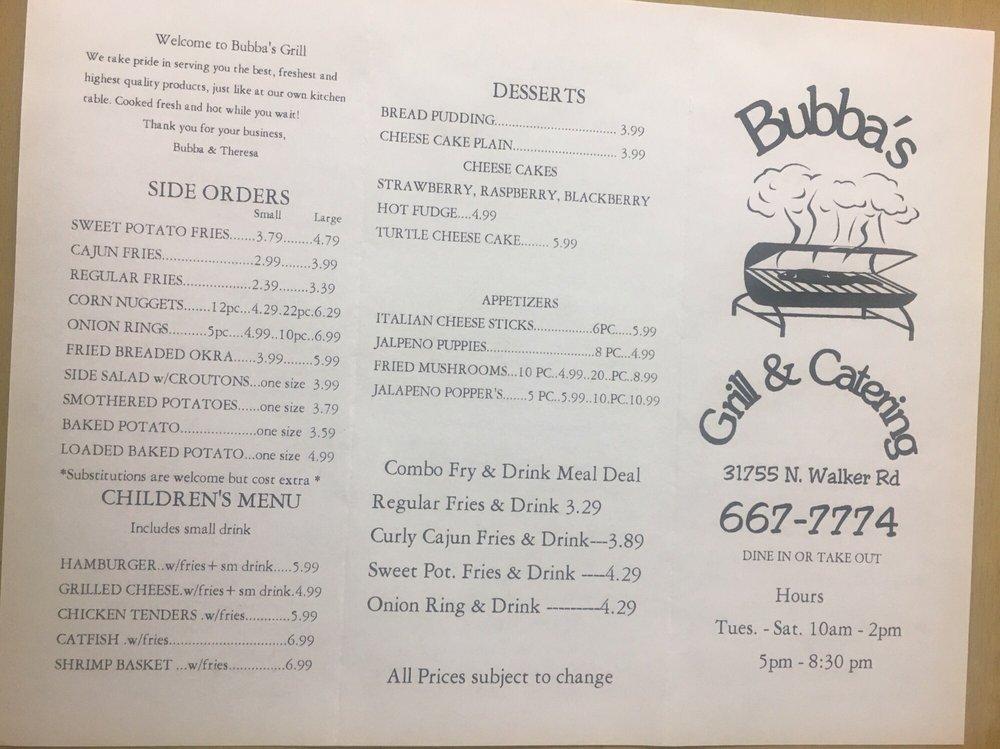 Welcome to Bubba's Grill
We take pride in serving you the best, freshest and
highest quality products, just like at our own kitchen
table. Cooked fresh and hot while you wait!
Thank you for your business,
Bubba & Theresa
SIDE ORDERS
Small Large
SWEET POTATO FRIES.......3.79........4.79
CAJUN FRIES........................2.99........3.99
REGULAR FRIES..................2.39........3.39
CORN NUGGETS.......12pc...4.29.22pc.6.29
ONION RINGS..........5pc....4.99..10pc..6.99
FRIED BREADED OKRA......3.99........5.99
SIDE SALAD w/CROUTONS...one size 3.99
SMOTHERED POTATOES......one size 3.79
BAKED POTATO....................one size 3.59
LOADED BAKED POTATO...one size 4.99
*Substitutions are welcome but cost extra *
CHILDREN'S MENU
Includes small drink
HAMBURGER..w/fries+ sm drink.....5.99
GRILLED CHEESE.w/fries+ sm drink.4.99
CHICKEN TENDERS .w/fries...........5.99
CATFISH .w/fries.............................6.99
SHRIMP BASKET ...w/fries..............6.99
DESSERTS
BREAD PUDDING.................................. 3.99
CHEESE CAKE PLAIN............................. 3.99
CHEESE CAKES
STRAWBERRY, RASPBERRY, BLACKBERRY
HOT FUDGE....4.99
TURTLE CHEESE CAKE........ 5.99
APPETIZERS
ITALIAN CHEESE STICKS...............6PC.....5.99
JALPENO PUPPIES............................8 PC...4.99
FRIED MUSHROOMS...10 PC..4.99..20..PC..8.99
JALAPENO POPPER'S.......5 PC..5.99..10.PC.10.99
Combo Fry & Drink Meal Deal
Regular Fries & Drink 3.29
Curly Cajun Fries & Drink---3.89
Sweet Pot. Fries & Drink ----4.29
Onion Ring & Drink ---------4.29
All Prices subject to change
Bubba's
Grill & Catering
31755 N. Walker Rd
667-7774
DINE IN OR TAKE OUT
Hours
Tues. - Sat. 10am - 2pm
5pm - 8:30 pm